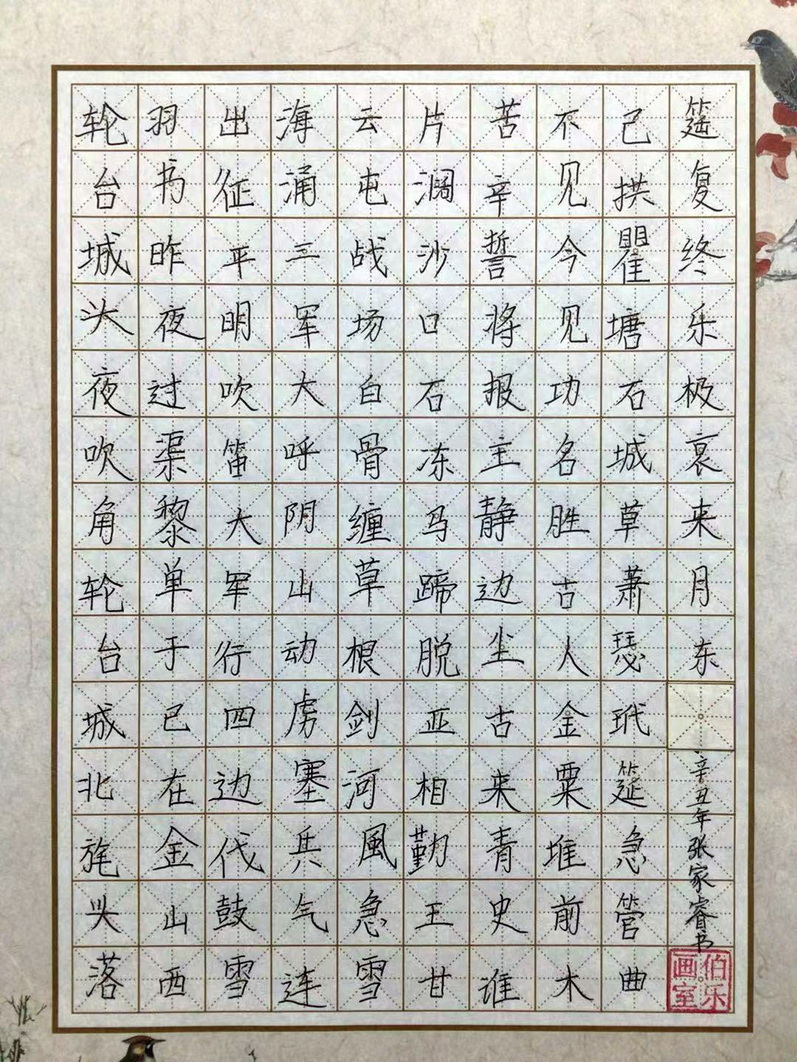 轮台城头夜吹角轮台城北旄头落
羽书昨夜过渠黎单于已在金山西
出征平明吹笛大军行四边代鼓雪
海涌三军大呼阴山动虏塞兵气连
云屯战场白骨缠草根剑河風急雪
片阔沙口石冻马蹄脱亚相勤王甘
苦辛誓将报主静边尘古来青史谁
不见今见功名胜古人金粟堆前木
已拱瞿塘石城草萧瑟玳筵急管曲
筵复终乐极哀来月东
辛丑年张家睿书
伯乐画室